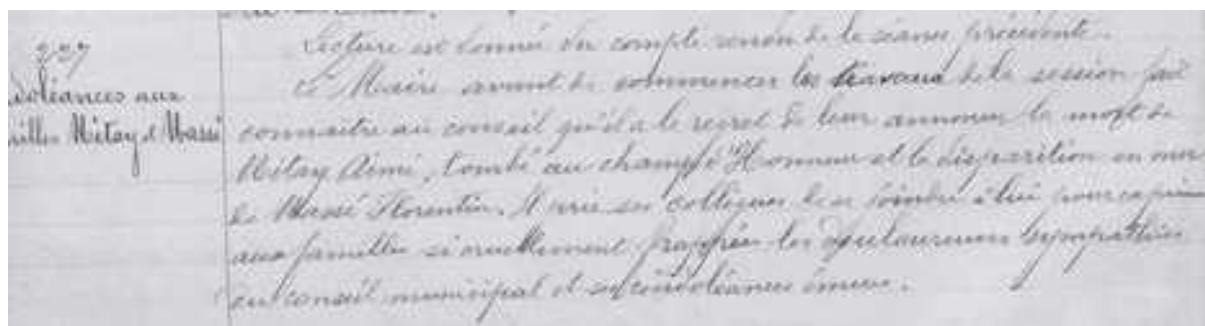 227
doléances aux
milles Métay et Massé
Lecture est donnée du compte rendu de la séance précédente.
Le Maire avant de commencer les travaux de la session fait
connaitre au conseil qu'il a le regret de leur annoncer la mort de
Métay Aimé, tombé au champ d'Honneur et la disparition en mer
de Massé Florentin. Il prie ses collègues de se joindre à lui pour exprimer
aux familles si cruellement frappées les douloureuses sympathies
du conseil municipal et ses condoléances émues.